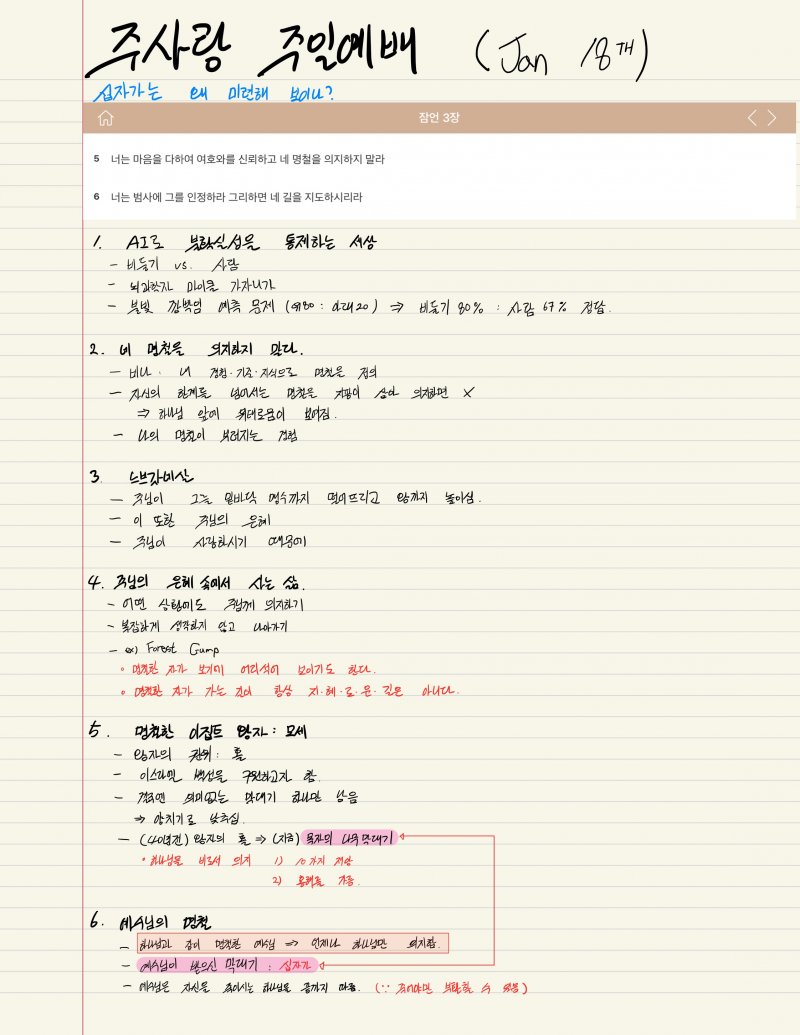 주사랑 주일예배 (Jan 18개)
십자가는 왜 미련해 보이나?
잠언 3장
5 너는 마음을 다하여 여호와를 신뢰하고 네 명철을 의지하지 말라
6 너는 범사에 그를 인정하라 그리하면 네 길을 지도하시리라
1. AI로 불확실성을 통제하는 세상
- 비둘기 vs. 사람
- 뇌과학자 마이클 가자니가
- 불빛 깜빡임 예측 문제 (위80 : 아래20) ⇒ 비둘기 80% : 사람 67% 정답.
2. 네 명철을 의지하지 말다.
- 비나 : 내 경험·기준·지식으로 명철을 정의
- 자신의 한계를 넘어서는 명철을 지팡이 삼아 의지하면 X
⇒ 하나님 앞에 위태로움이 보여짐.
- 나의 명철이 부러지는 경험
3. 느브갓네살
- 주님이 그를 밑바닥 멍수까지 떨어뜨리고 왕까지 높이심.
- 이 또한 주님의 은혜
- 주님이 사랑하시기 때문에
4. 주님의 은혜 속에서 사는 삶.
- 어떤 상황에도 주님께 의지하기
- 복잡하게 생각하지 않고 나아가기
- ex) Forest Gump
◦ 명철한 자가 보기에 어리석어 보이기도 한다.
◦ 명철한 자가 가는 길이 항상 지·혜·로·운·길은 아니다.
5. 명철한 이집트 왕자 : 모세
- 왕자의 권위 : 홀
- 이스라엘 백성을 구원하고자 함.
- 의미없는 막대기 하나만 남음
⇒ 양치기로 낮추심.
- (40년전) 왕자의 홀 ⇒ (지금) 목자의 나무막대기
◦ 하나님을 비로서 의지 1) 10가지 재앙
2) 홍해를 가름.
6. 예수님의 명철
- 하나님과 같이 명철한 예수님 ⇒ 언제나 하나님만 의지함.
- 예수님이 받으신 막대기 : 십자가
- 예수님은 자신을 죽이시는 하나님을 끝까지 따름. (∵ 죽어야만 부활할 수 있음)